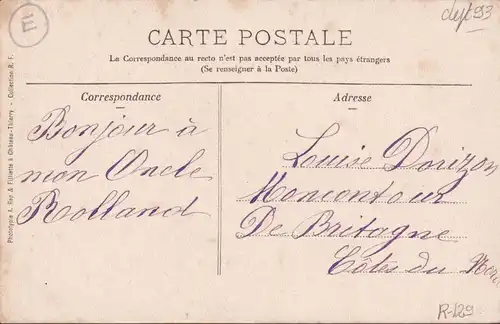 E
dept 93
CARTE POSTALE
La Correspondance au recto n'est pas acceptée par tous les pays étrangers
(Se renseigner à la Poste)
Correspondance
Adresse
Bonjour à
mon Oncle
Rolland
Louise Dorizon
Moncontour
De Britagne
Côtes du Nord
Phototypie A. Rep & Filliette à Château-Thierry - Collection R. F.
R-129